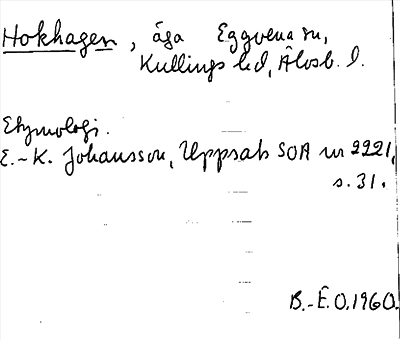 Hokhagen, äga Eggvena sn,
Kullings hd, Älvsb. l.
Etymologi.
E.-K. Johansson, Uppsats SOA nr 2221,
s. 31.
B.-E.O.1960.